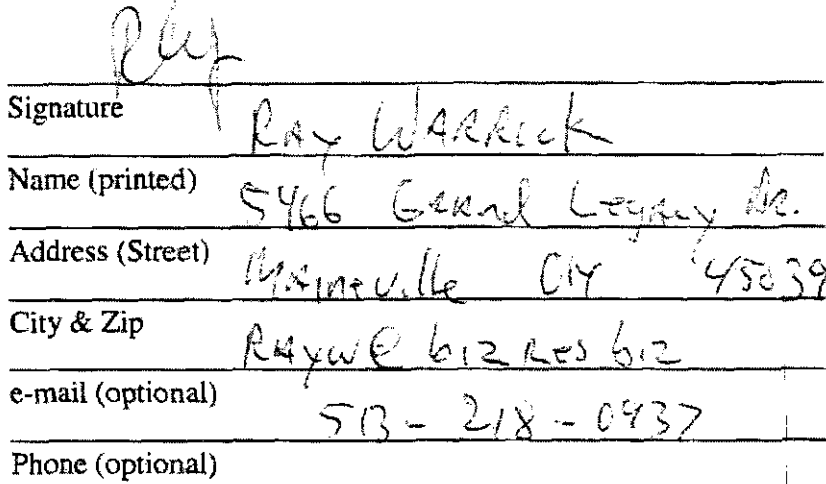 Signature
RAY WARRICK
Name (printed)
5466 Grand Legacy Dr.
Address (Street)
Maineville OH 45039
City & Zip
RAYW@bizres.biz
e-mail (optional)
513-218-0437
Phone (optional)